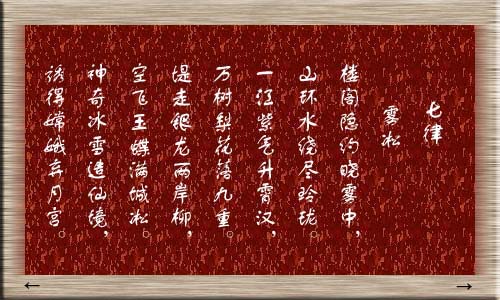 七律
雾凇
楼阁隐约晓雾中，
山环水绕尽玲珑。
一江紫毫升霄汉，
万树梨花落九重。
堤走银龙两岸柳，
空飞玉蝶满城凇。
神奇冰雪造仙境，
诱得嫦娥弃月宫。
← →